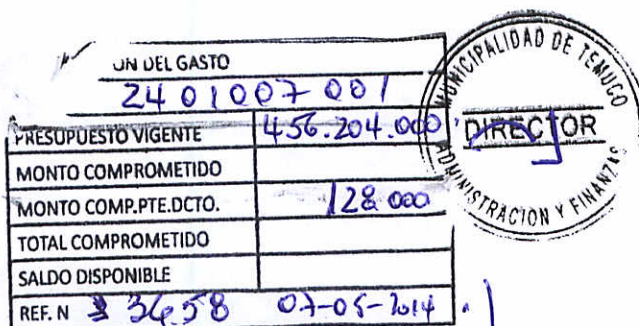 ÓN DEL GASTO
24 01 007 001
PRESUPUESTO VIGENTE 456.204.000
MONTO COMPROMETIDO
MONTO COMP.PTE.DCTO. 128.000
TOTAL COMPROMETIDO
SALDO DISPONIBLE
REF. N 3658 07-05-2014
MUNICIPALIDAD DE TEMUCO
DIRECTOR
ADMINISTRACION Y FINANZAS